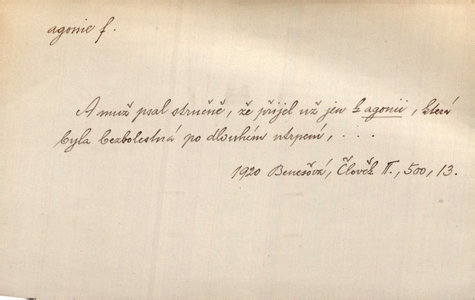 agonie f.
A muž psal stručně, že přijel už jen k agonii, která
byla bezbolestná po dlouhém utrpení, . . .
1920 Benešová, Člověk II., 500, 13.